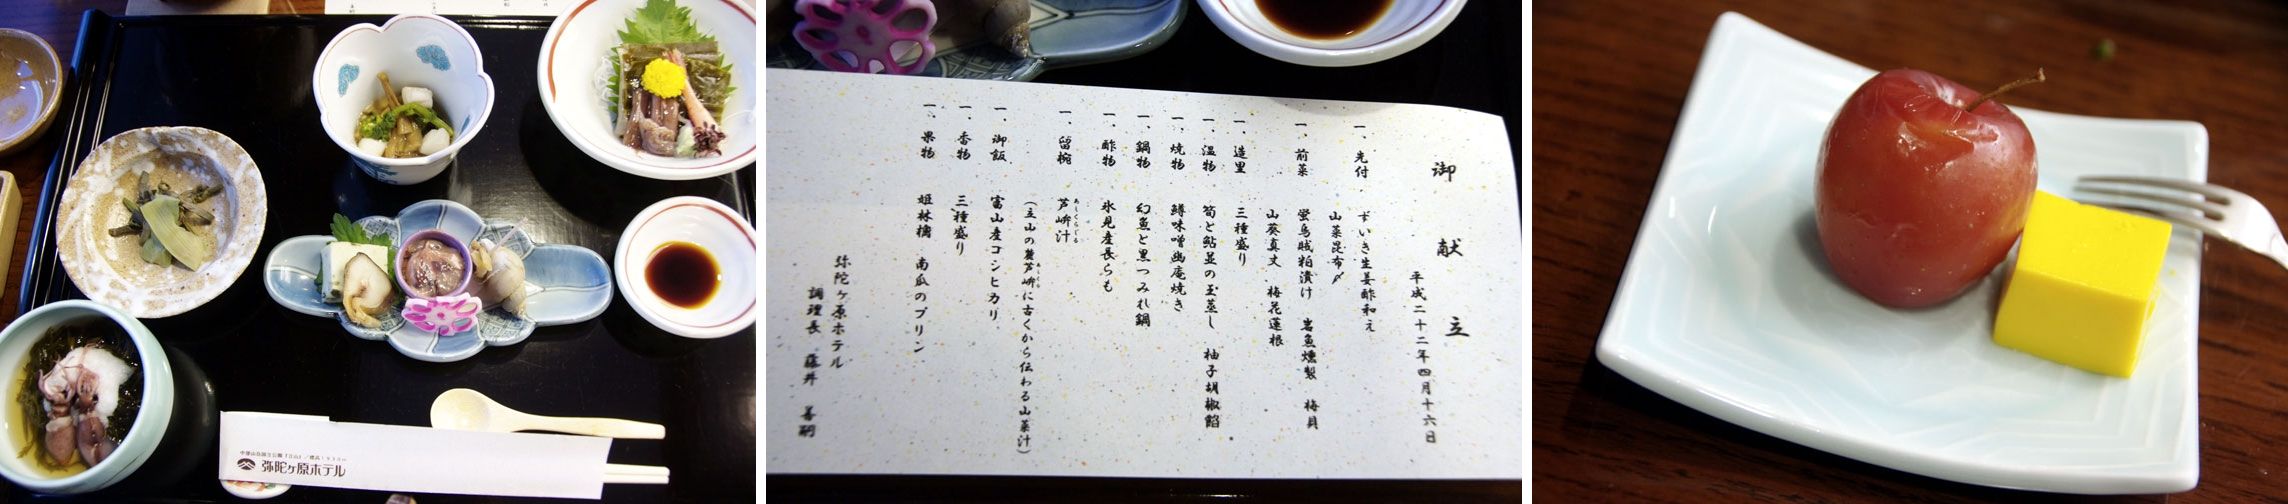 中部山岳国立公園「立山」／標高1930m
弥陀ヶ原ホテル
御献立
平成二十二年四月十六日
一、先付 ずいき生姜酢和え
山菜昆布〆
一、前菜 蛍烏賊粕漬け 岩魚燻製 梅貝
山葵真丈 梅花蓮根
一、造里 三種盛り
一、温物 筍と鮎並の玉蒸し 柚子胡椒餡
一、焼物 鱒味噌幽庵焼き
一、鍋物 幻魚と黒つみれ鍋
一、酢物 氷見産長らも
一、留椀 芦峅汁
あしくらじる
（立山の麓芦峅に古くから伝わる山菜汁）
あしくら
一、御飯 富山産コシヒカリ
一、香物 三種盛り
一、果物 姫林檎 南瓜のプリン
弥陀ヶ原ホテル
調理長 藤井 善嗣